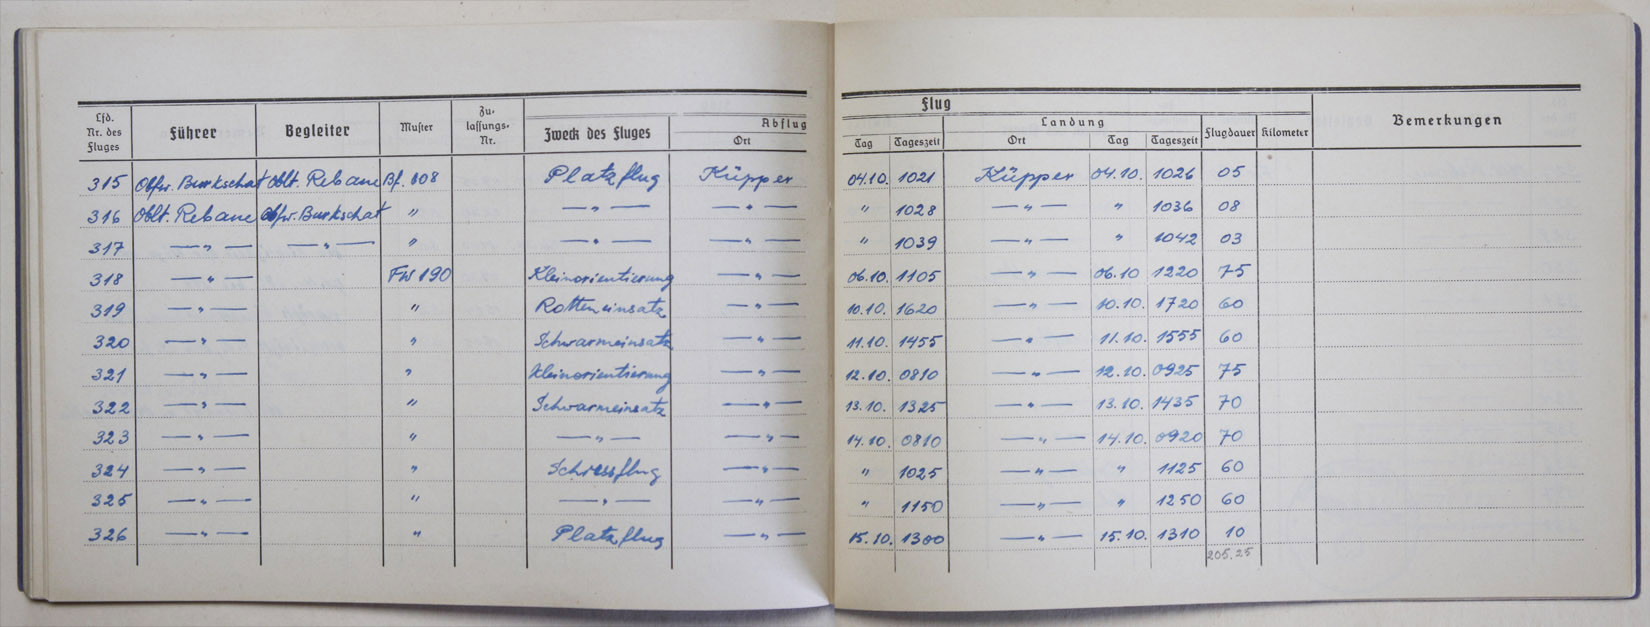 Lfd. Nr. des Fluges Führer Begleiter Muster Zulassungs-Nr. Zweck des Fluges Abflug Ort Tag Tageszeit Flug Landung Ort Tag Tageszeit Flugdauer Kilometer Bemerkungen
315 Obfw. Burkschat Oblt. Rebane Bf. 108 Platzflug Küpper 04.10. 1021 Küpper 04.10. 1026 05
316 Oblt. Rebane Obfw. Burkschat " —"— —"— " 1028 —"— " 1036 08
317 —"— —"— " —"— —"— " 1039 —"— " 1042 03
318 —"— FW 190 Kleinorientierung —"— 06.10. 1105 —"— 06.10 1220 75
319 —"— " Rotteneinsatz —"— 10.10. 1620 —"— 10.10. 1720 60
320 —"— " Schwarmeinsatz —"— 11.10. 1455 —"— 11.10. 1555 60
321 —"— " Kleinorientierung —"— 12.10. 0810 —"— 12.10. 0925 75
322 —"— " Schwarmeinsatz —"— 13.10. 1325 —"— 13.10. 1435 70
323 —"— " —"— —"— 14.10. 0810 —"— 14.10. 0920 70
324 —"— " Schiessflug —"— " 1025 —"— " 1125 60
325 —"— " —"— —"— " 1150 —"— " 1250 60
326 —"— " Platzflug —"— 15.10. 1300 —"— 15.10. 1310 10
205.25